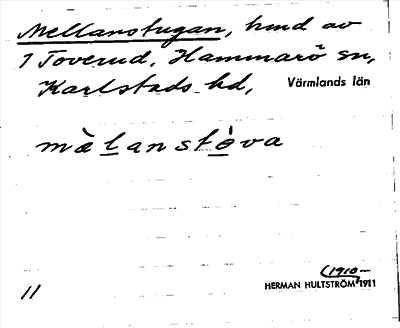 Mellanstugan, hmd av
1 Toverud, Hammarö sn,
Karlstads hd, Värmlands län
mèlanstòva
(1910–
HERMAN HULTSTRÖM, 1911
11